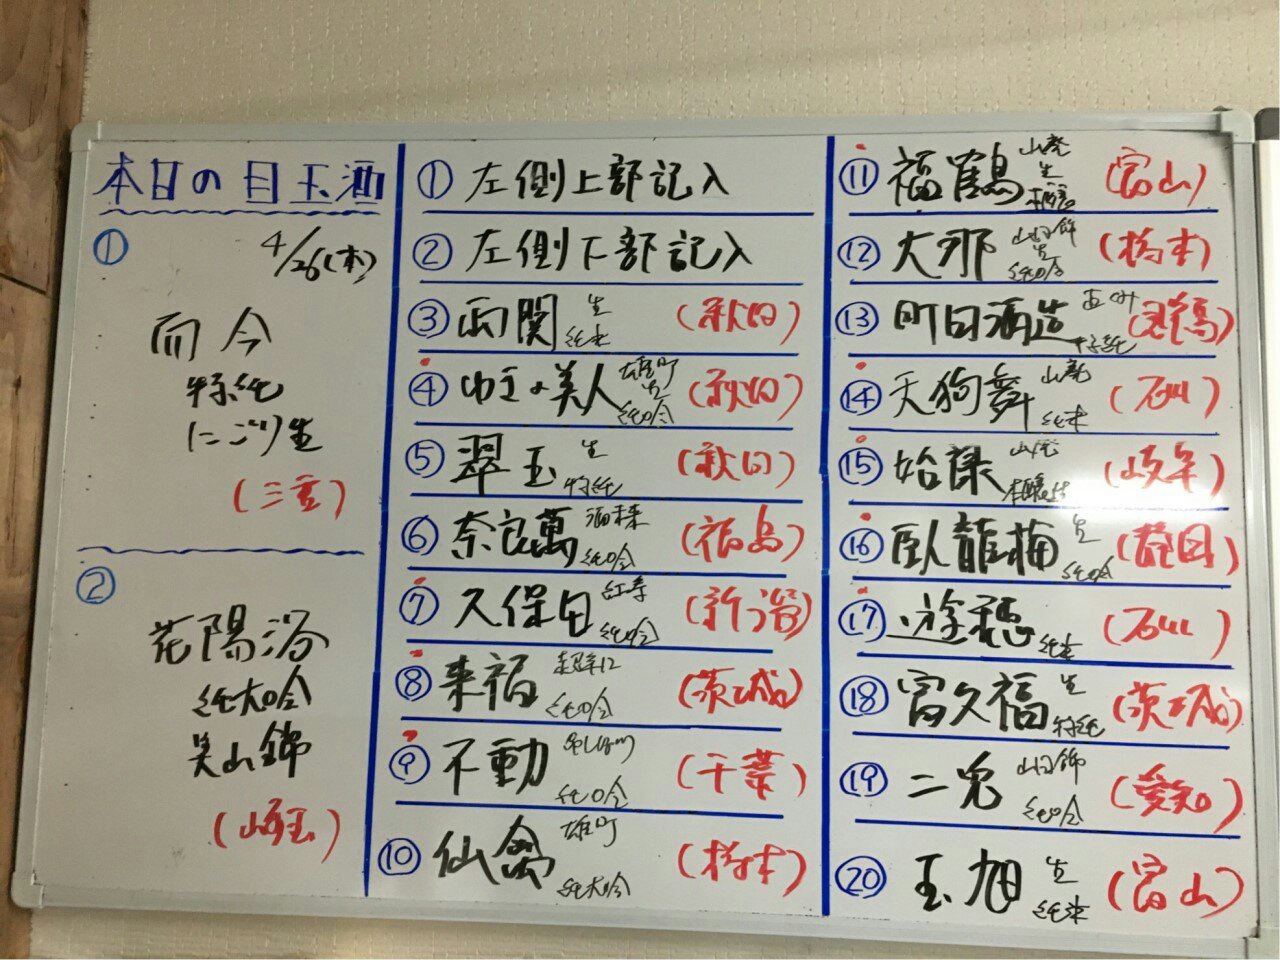 本日の目玉酒
①
4/26(木)
而今
特純
にごり生
(三重)
②
花陽浴
純大吟
美山錦
(埼玉)
① 左側上部記入
② 左側下部記入
③ 両関 生 純米 (秋田)
④ ゆきの美人 雄町 生 純吟 (秋田)
⑤ 翠玉 生 特純 (秋田)
⑥ 奈良萬 酒未来 純吟 (福島)
⑦ 久保田 紅寿 純吟 (新潟)
⑧ 来福 超辛口 純吟 (茨城)
⑨ 不動 吊しぼり 純吟 (千葉)
⑩ 仙禽 雄町 純大吟 (栃木)
⑪ 福鶴 山廃 生 本醸 (富山)
⑫ 大那 山田錦 生 純吟 (栃木)
⑬ 町田酒造 特純 (群馬)
⑭ 天狗舞 山廃 純米 (石川)
⑮ 始禄 山廃 本醸生 (岐阜)
⑯ 臥龍梅 生 純吟 (静岡)
⑰ 遊穂 純米 (石川)
⑱ 富久福 生 特純 (茨城)
⑲ 二兎 山田錦 純吟 (愛知)
⑳ 玉旭 生 純米 (富山)